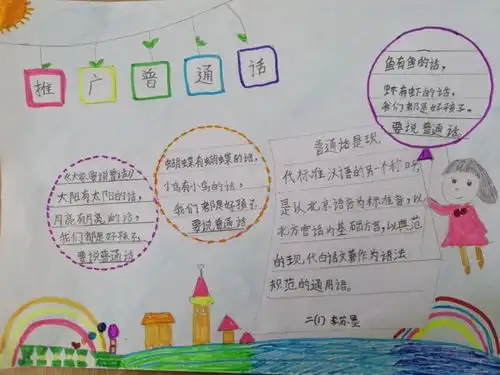 推广普通话
鱼有鱼的话,
虾有虾的话。
我们都是好孩子。
要说普通话
《大家要说普话》
大阳有太阳的话,
月亮有月亮的话。
我们都是好孩子。
要说普通话
蝴蝶有蝴蝶的话,
小鸟有小鸟的话,
我们都是好孩子
要说普通话
普通话是现
代标准汉语的另一个称呼,
是以北京语音为标准音,以
北方官话为基础方言,以典范
的现代白话文著作为语法
规范的通用语。
二(1)